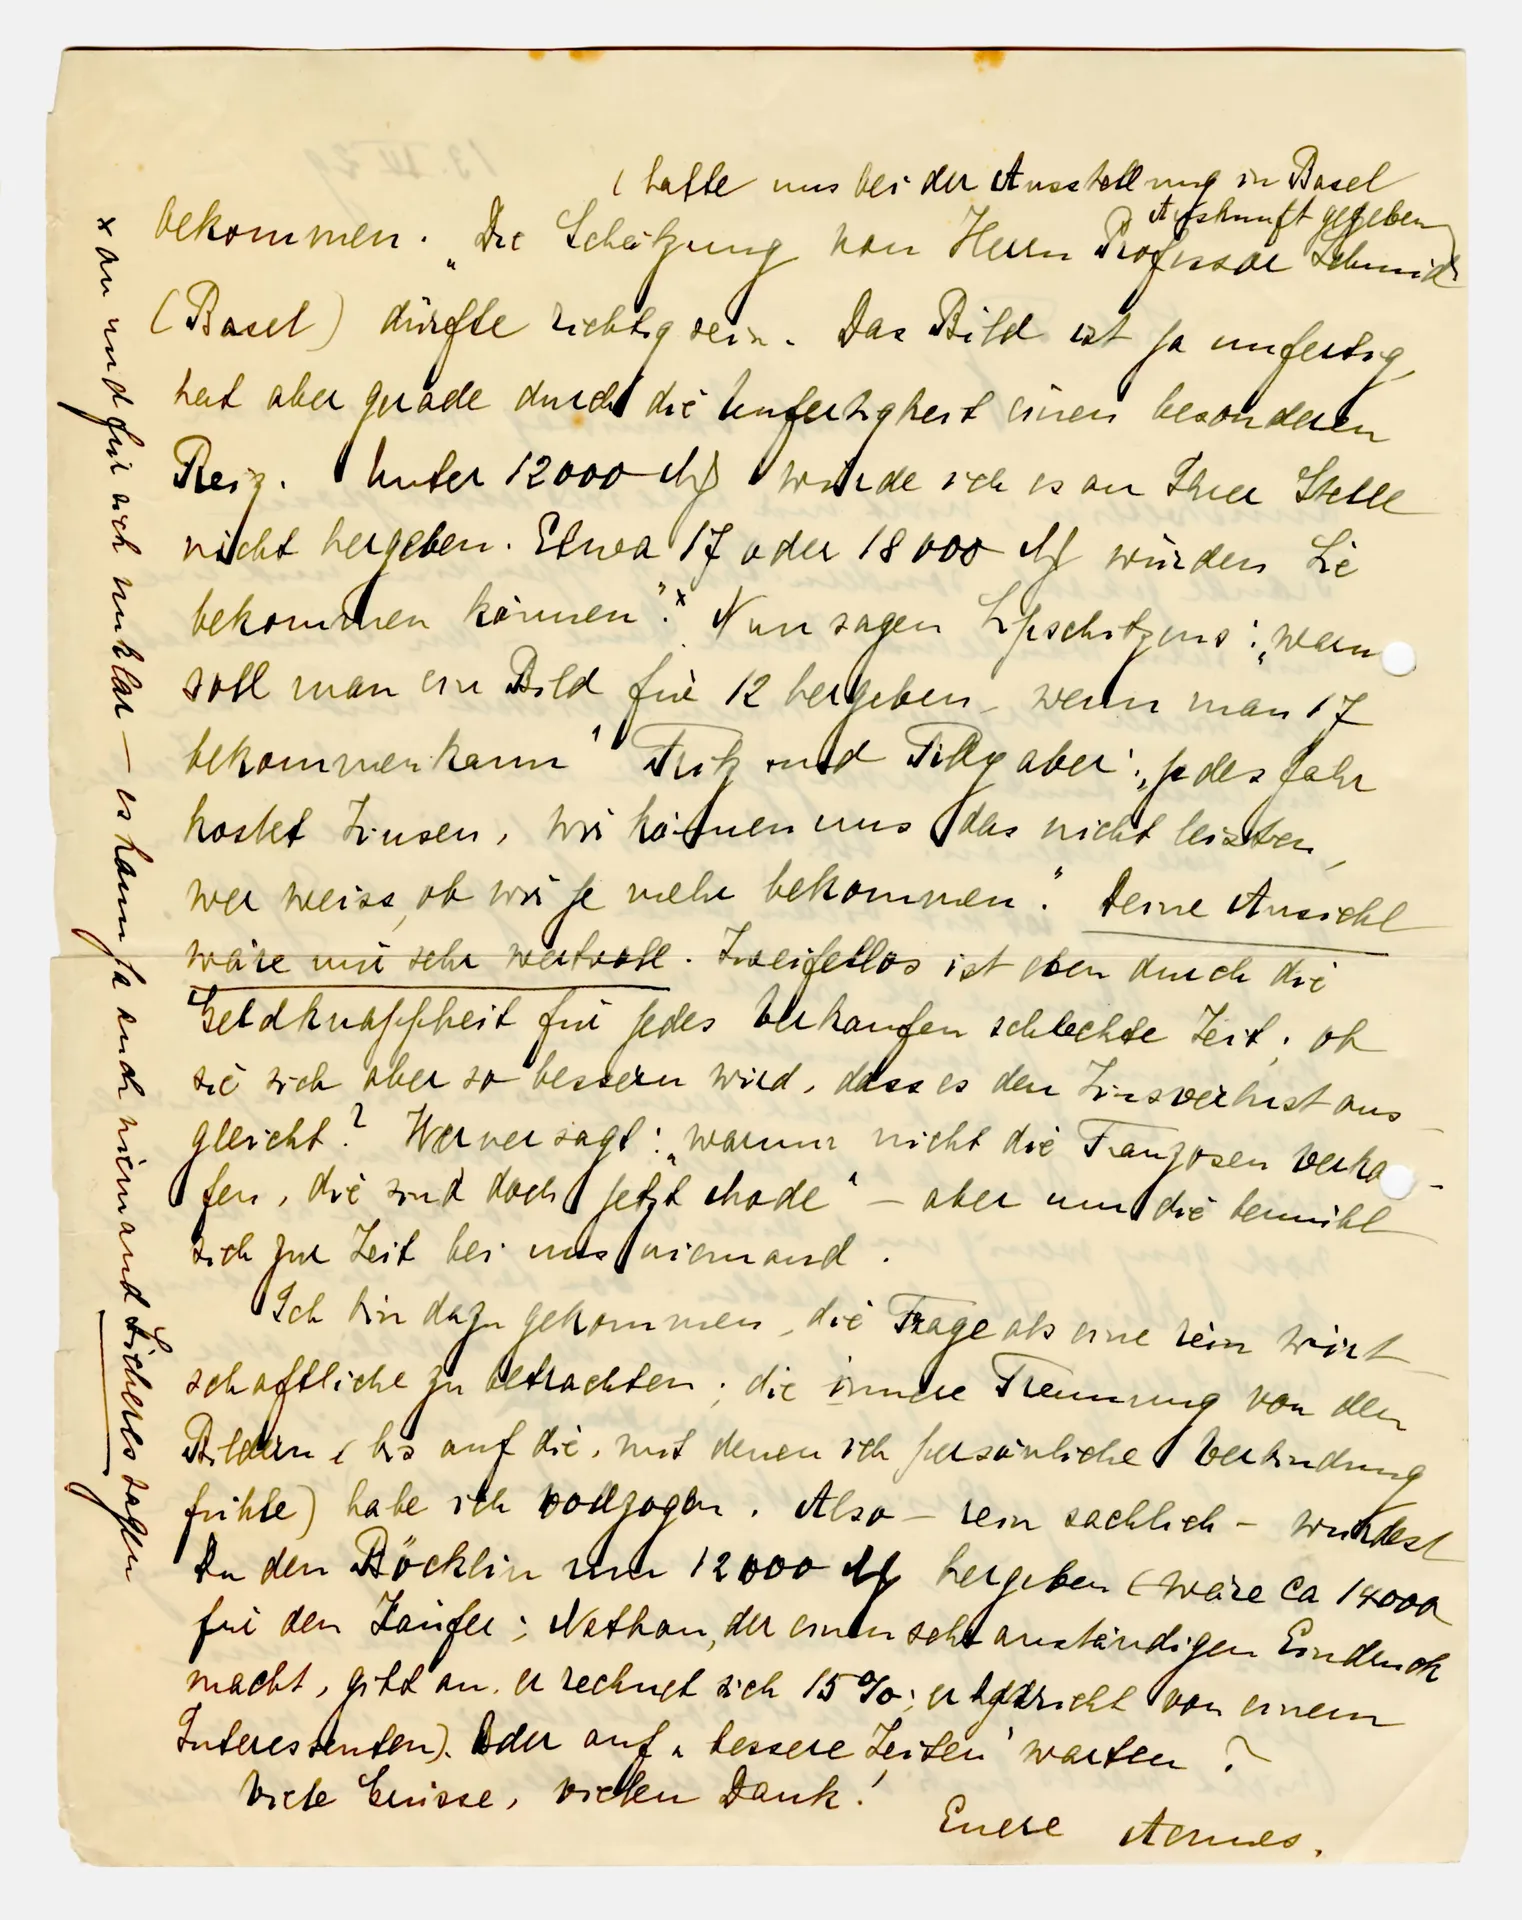 (hatte uns bei der Ausstellung in Basel
Auskunft gegeben)
bekommen. „Die Schätzung von Herrn Professor Schmid
(Basel) dürfte richtig sein. Das Bild ist ja unfertig,
hat aber gerade durch die Unfertigkeit einen besonderen
Reiz. Unter 12000 M würde ich es an Ihrer Stelle
nicht hergeben. Etwa 17 oder 18 000 M würden Sie
bekommen können“.x Nun sagen Lipschitzens: „warum
soll man ein Bild für 12 hergeben, wenn man 17
bekommen kann“ Fritz und Tilly aber: „jedes Jahr
kostet Zinsen, wir können uns das nicht leisten,
wer weiss, ob wir je mehr bekommen“. Deine Ansicht
wäre mir sehr wertvoll. Zweifellos ist eben durch die
Geldknappheit für jedes Verkaufen schlechte Zeit; ob
sie sich aber so bessern wird, dass es den Zinsverlust aus-
gleicht? Werner sagt: „warum nicht die Franzosen verkau-
fen, die sind doch jetzt Mode“ – aber um die bemüht
sich zur Zeit bei uns niemand.
Ich bin dazu gekommen, die Frage als eine rein wirt-
schaftliche zu betrachten; die innere Trennung von den
Bildern (bis auf die, mit denen ich persönliche Verbindung
fühle) habe ich vollzogen. Also – rein sachlich – würdest
Du den Böcklin um 12000 M hergeben (wäre ca 14000
für den Käufer; Nathan, der einen sehr anständigen Eindruck
macht, gibt an, er rechnet sich 15%; er spricht von einem
Interessenten). Oder auf „bessere Zeiten“ warten?
Viele Grüsse, vielen Dank!
Euere Agnes.
x an und für sich unklar – es kann ja auch niemand Sicheres sagen